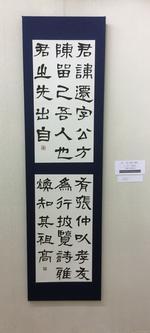 君諱遷字公方
陳留己吾人也
君之先出自
有張仲以孝友
為行披覽詩雅
煥知其祖高